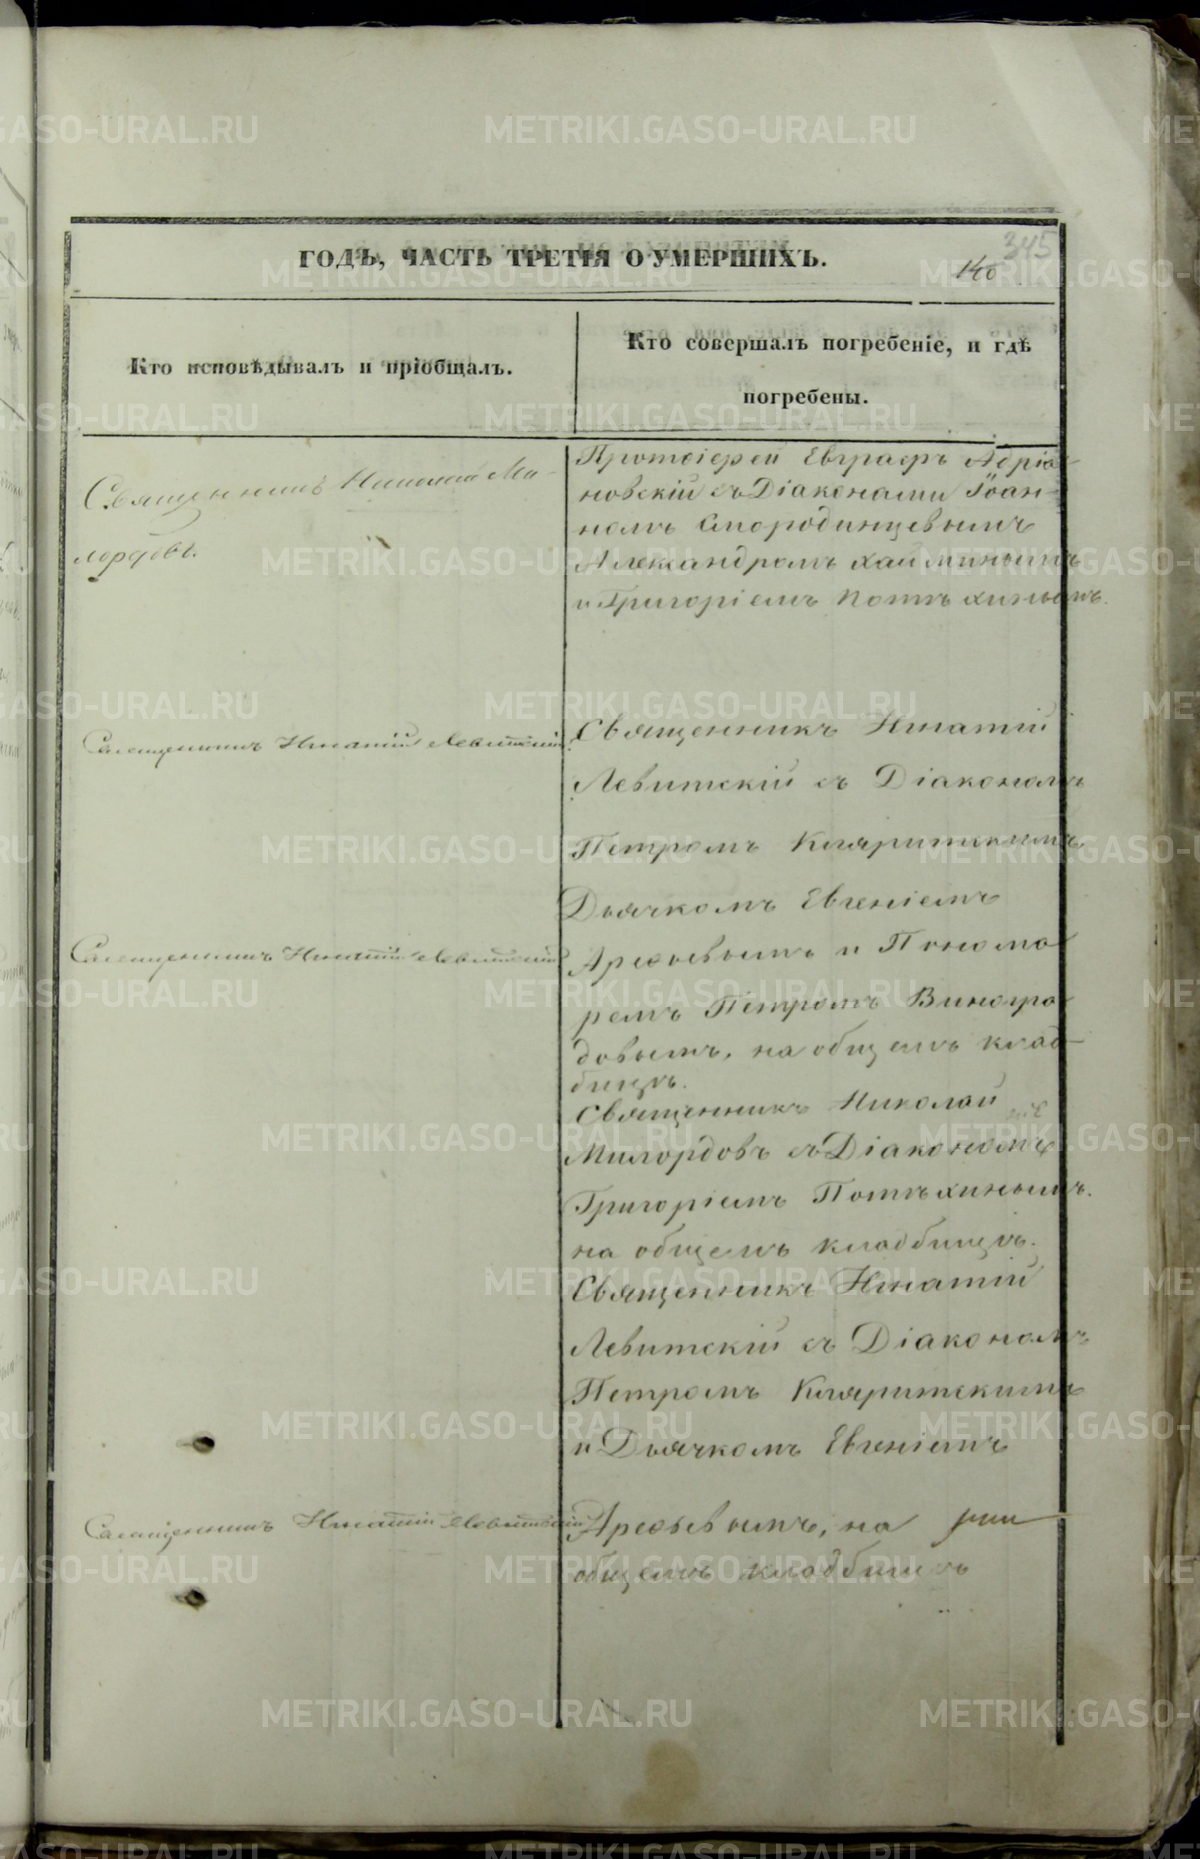 345
ГОДЪ, ЧАСТЬ ТРЕТІЯ О УМЕРШИХЪ.
140
Кто исповѣдывалъ и пріобщалъ.
Кто совершалъ погребеніе, и гдѣ
погребены.
Священникъ Николай Ми-
лордовъ.
Протоіерей Евграфъ Адріа-
новскій съ Діаконами Іоан-
номъ Смородинцевымъ
Александромъ Хайминымъ
и Григоріемъ Потѣхинымъ.
Священникъ Игнатій Левитскій
Священникъ Игнатій
Левитскій съ Діакономъ
Петромъ Кляритскимъ
Дьячкомъ Евгеніемъ
Священникъ Игнатій Левитскій
Арефьевымъ и Понома-
ремъ Петромъ Виногра-
довымъ, на общемъ клад-
бищѣ.
Священникъ Николай
Милордовъ съ Діакономъ
Григоріемъ Потѣхинымъ.
на общемъ кладбищѣ.
Священникъ Игнатій
Левитскій съ Діакономъ
Петромъ Кляритскимъ
и Дьячкомъ Евгеніемъ
Священникъ Игнатій Левитскій
Арефьевымъ, на
общемъ кладбищѣ
METRIKI.GASO-URAL.RU